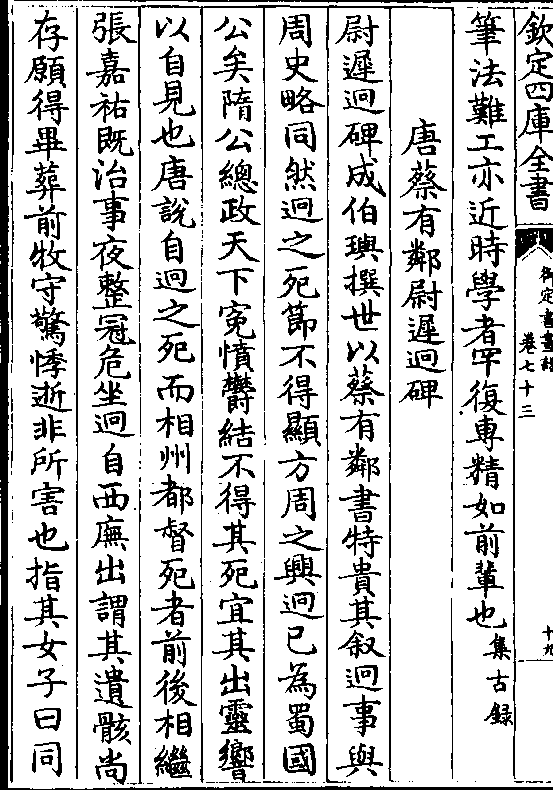 欽定四庫全書
御定書畫譜
卷七十三
十九
筆法難工亦近時學者罕復專精如前輩也集古録
唐蔡有鄰尉遲迥碑
尉遲迥碑成伯璵撰世以蔡有鄰書特貴其叙迥事與
周史略同然迥之死節不得顯方周之興迥已為蜀國
公矣隋公總政天下寃憤欝結不得其死宜其出靈響
以自見也唐說自迥之死而相州都督死者前後相繼
張嘉祐既治事夜整冠危坐迥自西廡出謂其遺骸尚
存願得畢葬前牧守驚悸逝非所害也指其女子曰同